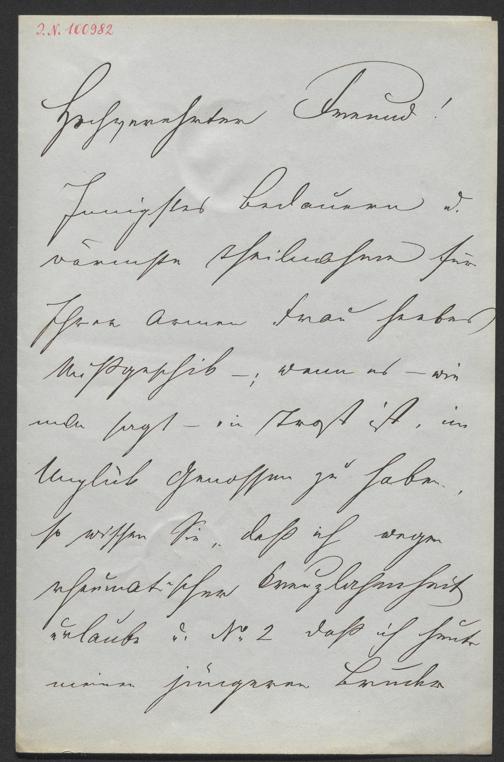 J.N. 100982
Hochverehrter Freund!
Innigstes Bedauern u.
wärmste Theilnahme für
Ihrer armen Frau herbes
Mißgeschik –; wenn es – wie
man sagt – ein Trost ist, im
Unglük Genossen zu haben,
so wissen Sie, daß ich wegen
rheumatischer Kreuzlahmheit
u. No 2 daß ich heute
meinen jüngeren Bruder